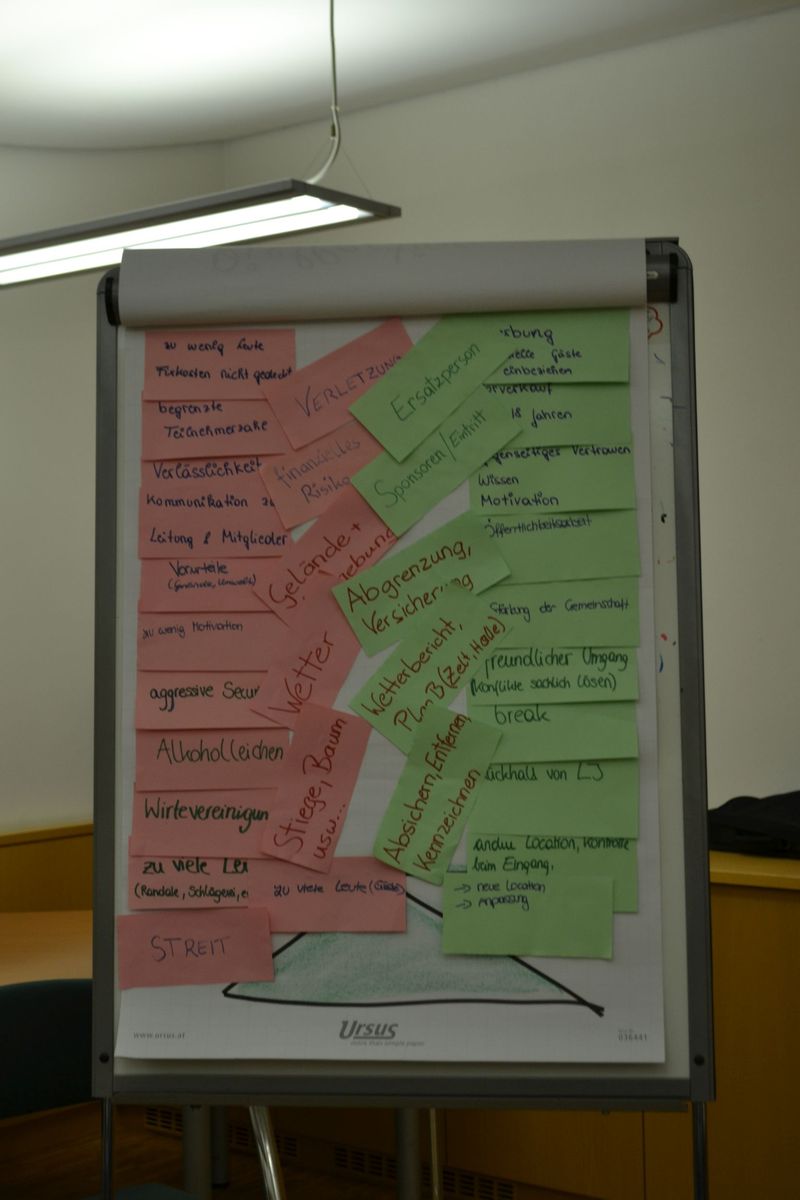 zu wenig Leute
Fixkosten nicht gedeckt
begrenzte
Teilnehmerzahl
Verlässlichkeit
Kommunikation
Leitung & Mitglieder
Vorurteile
zu wenig Motivation
aggressive Secur
Alkoholleichen
Wirtevereinigun
zu viele Leu
(Randale, Schlägerei, e
STREIT
VERLETZUNG
finanzielles
Risiko
Gelände +
gebung
Wetter
Stiege, Baum
usw...
zu viele Leute (Gäste)
Ersatzperson
Sponsoren/Eintritt
Abgrenzung,
Versicherung
Wetterbericht,
Plan B (Zelt, Halle)
Absichern, Entfernen,
Kennzeichnen
rbung
elle Gäste
einbeziehen
rverkauf
18 Jahren
genseitiges Vertrauen
Wissen
Motivation
Öffentlichkeitsarbeit
Stärkung der Gemeinschaft
freundlicher Umgang
(Konflikte sachlich lösen)
break
ückhalt von LJ
andere Location, Kontrolle
beim Eingang,
→ neue Location
→ Anpassung
www.ursus.at
Ursus
036441